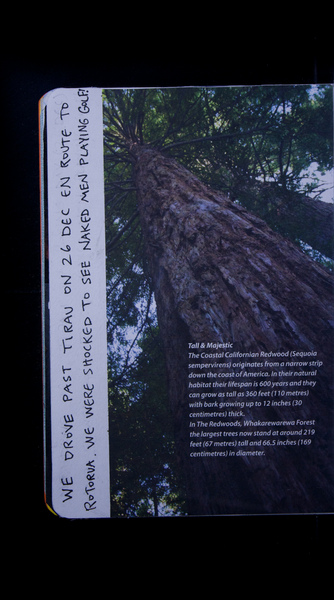 WE DROVE PAST TIRAU ON 26 DEC EN ROUTE TO
ROTORUA. WE WERE SHOCKED TO SEE NAKED MEN PLAYING GOLF!
Tall & Majestic
The Coastal Californian Redwood (Sequoia
sempervirens) originates from a narrow strip
down the coast of America. In their natural
habitat their lifespan is 600 years and they
can grow as tall as 360 feet (110 metres)
with bark growing up to 12 inches (30
centimetres) thick.
In The Redwoods, Whakarewarewa Forest
the largest trees now stand at around 219
feet (67 metres) tall and 66.5 inches (169
centimetres) in diameter.